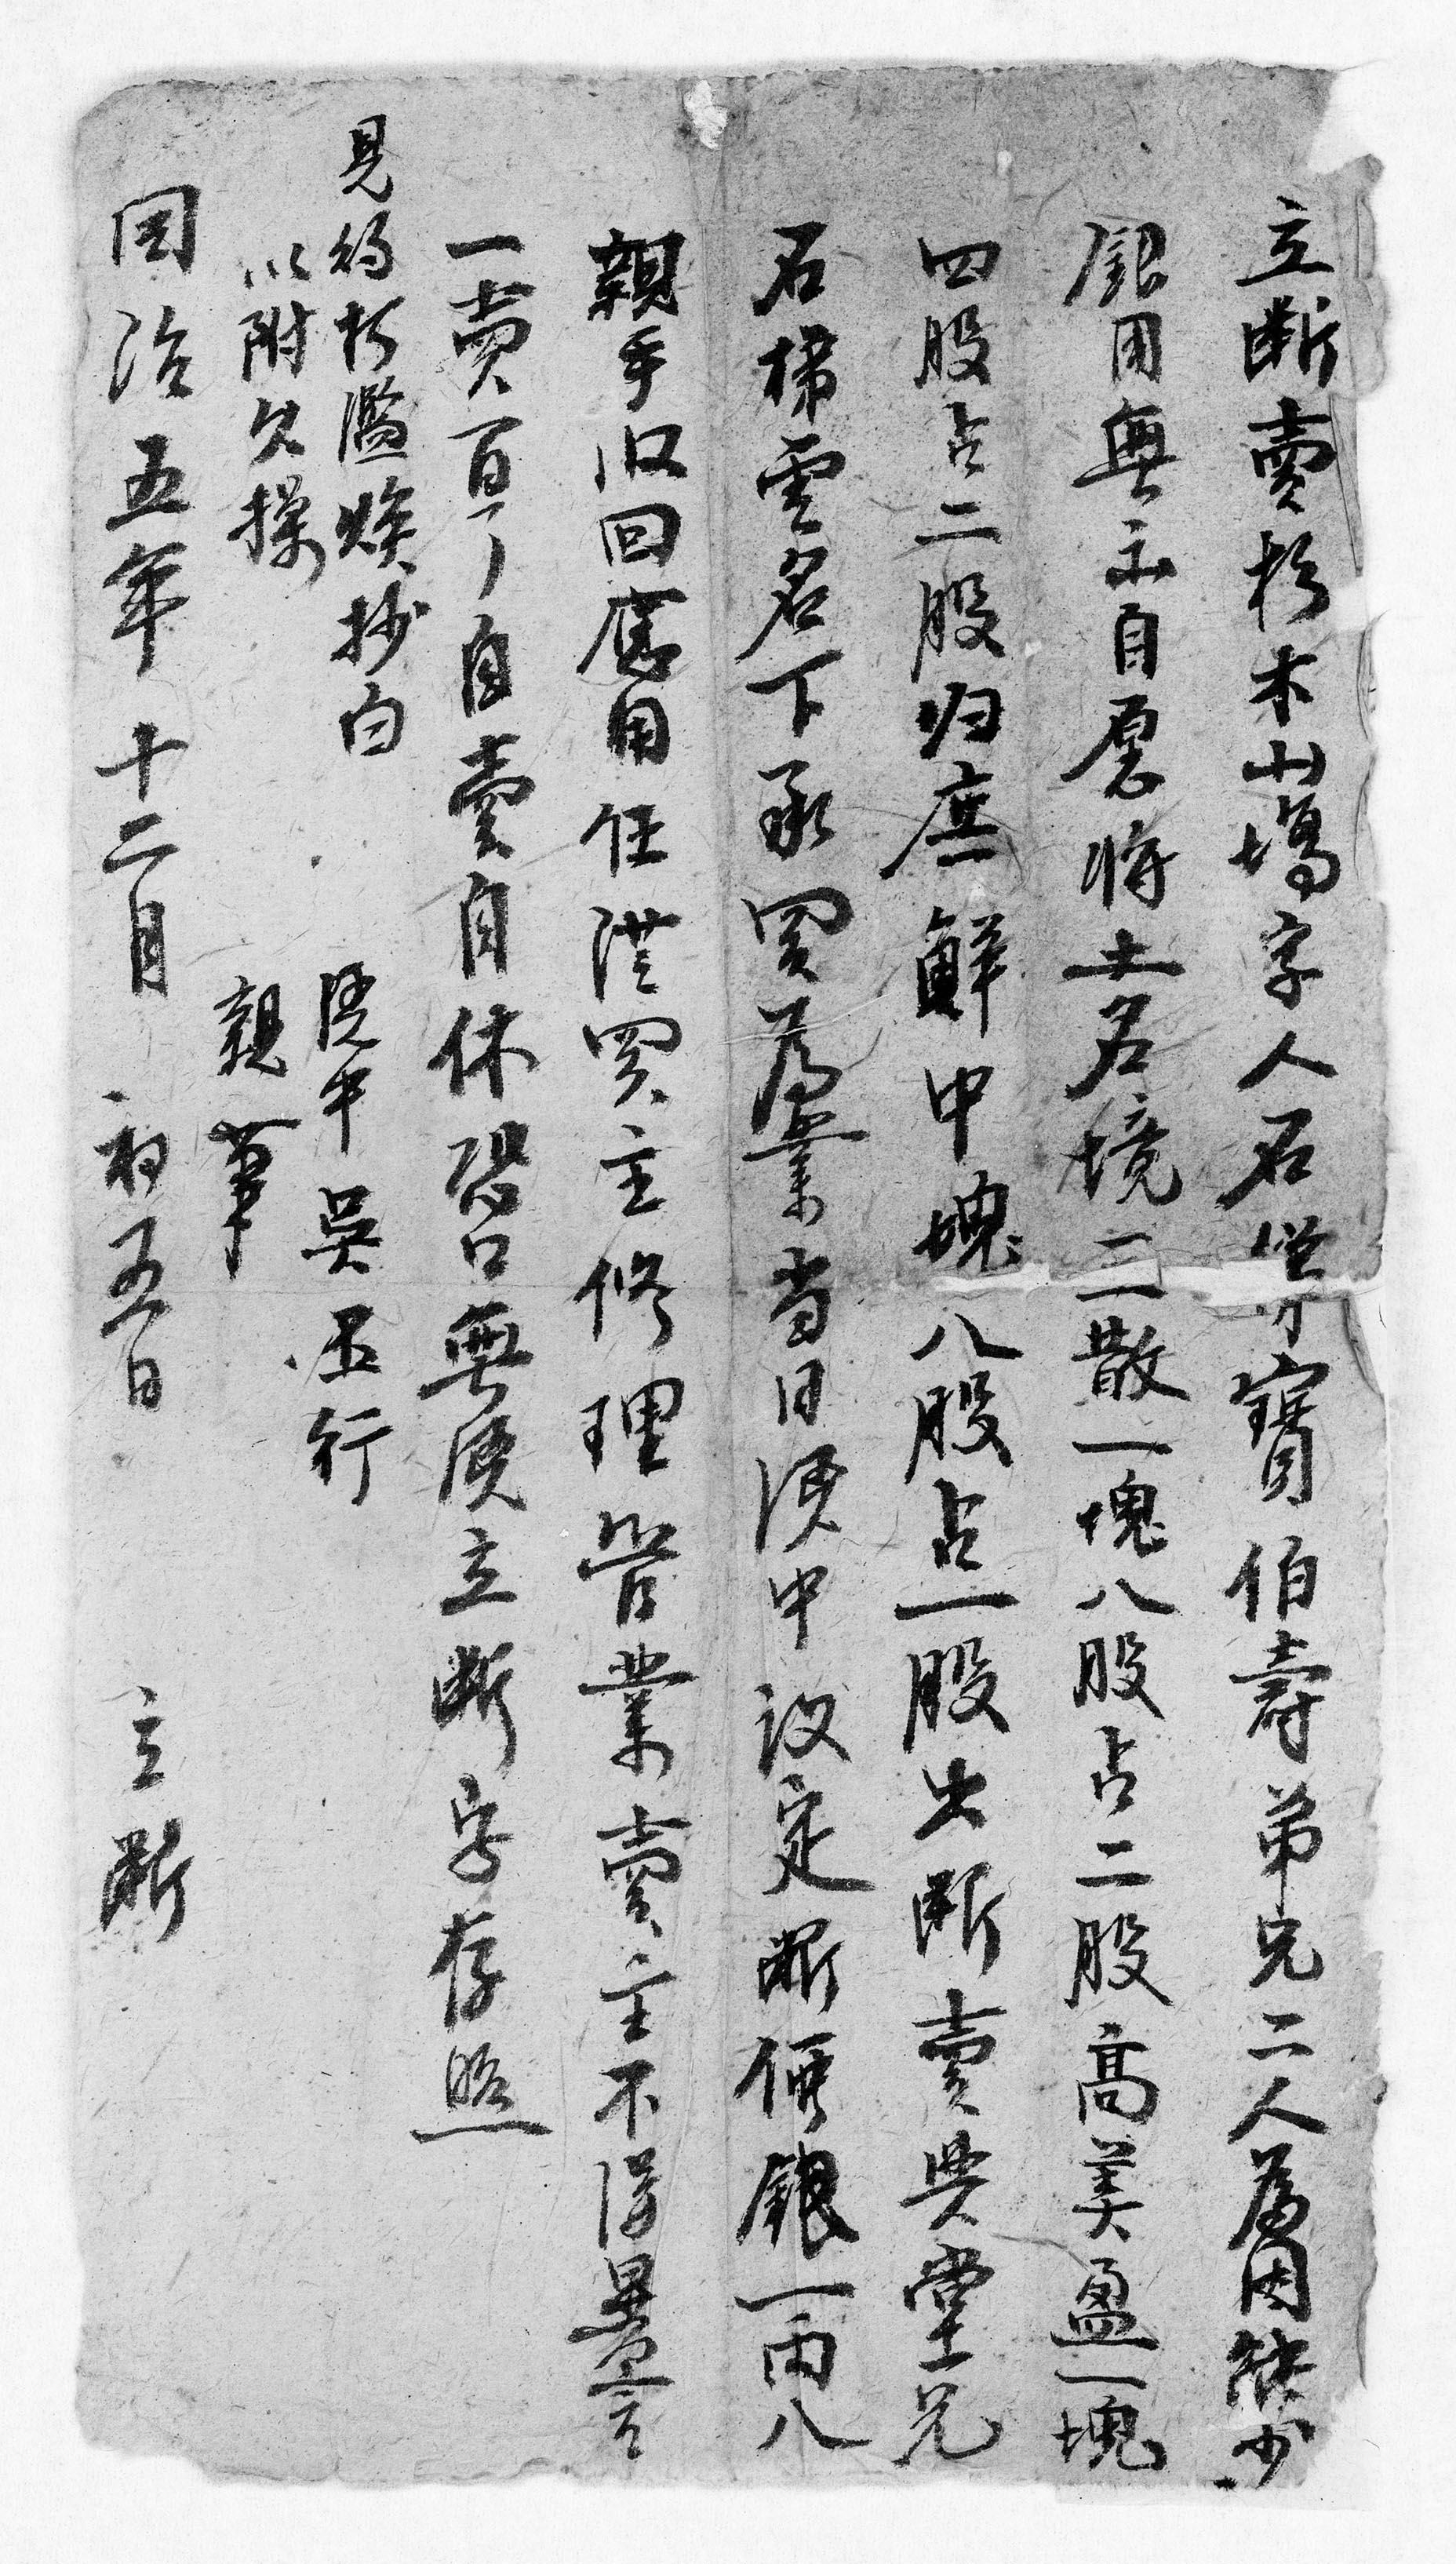 立断賣杉木山塲字人石𡊮寳伯壽弟兄二人為因缺少
銀用無示自愿將土名境二散一塊八股占二股高美盈一塊
四股占二股归庶鮮中塊八股占一股出断賣與堂兄
石梯雲名下承買為業当日凴中议定断價銀一両八
親手收回應用任從買主修理管業賣主不得異言
一賣百了自賣自休恐口無凴立断字存照
見約朽濫燦抄白
以附久操
凴中吳丕行
親筆
同治五年十二月初五日立断